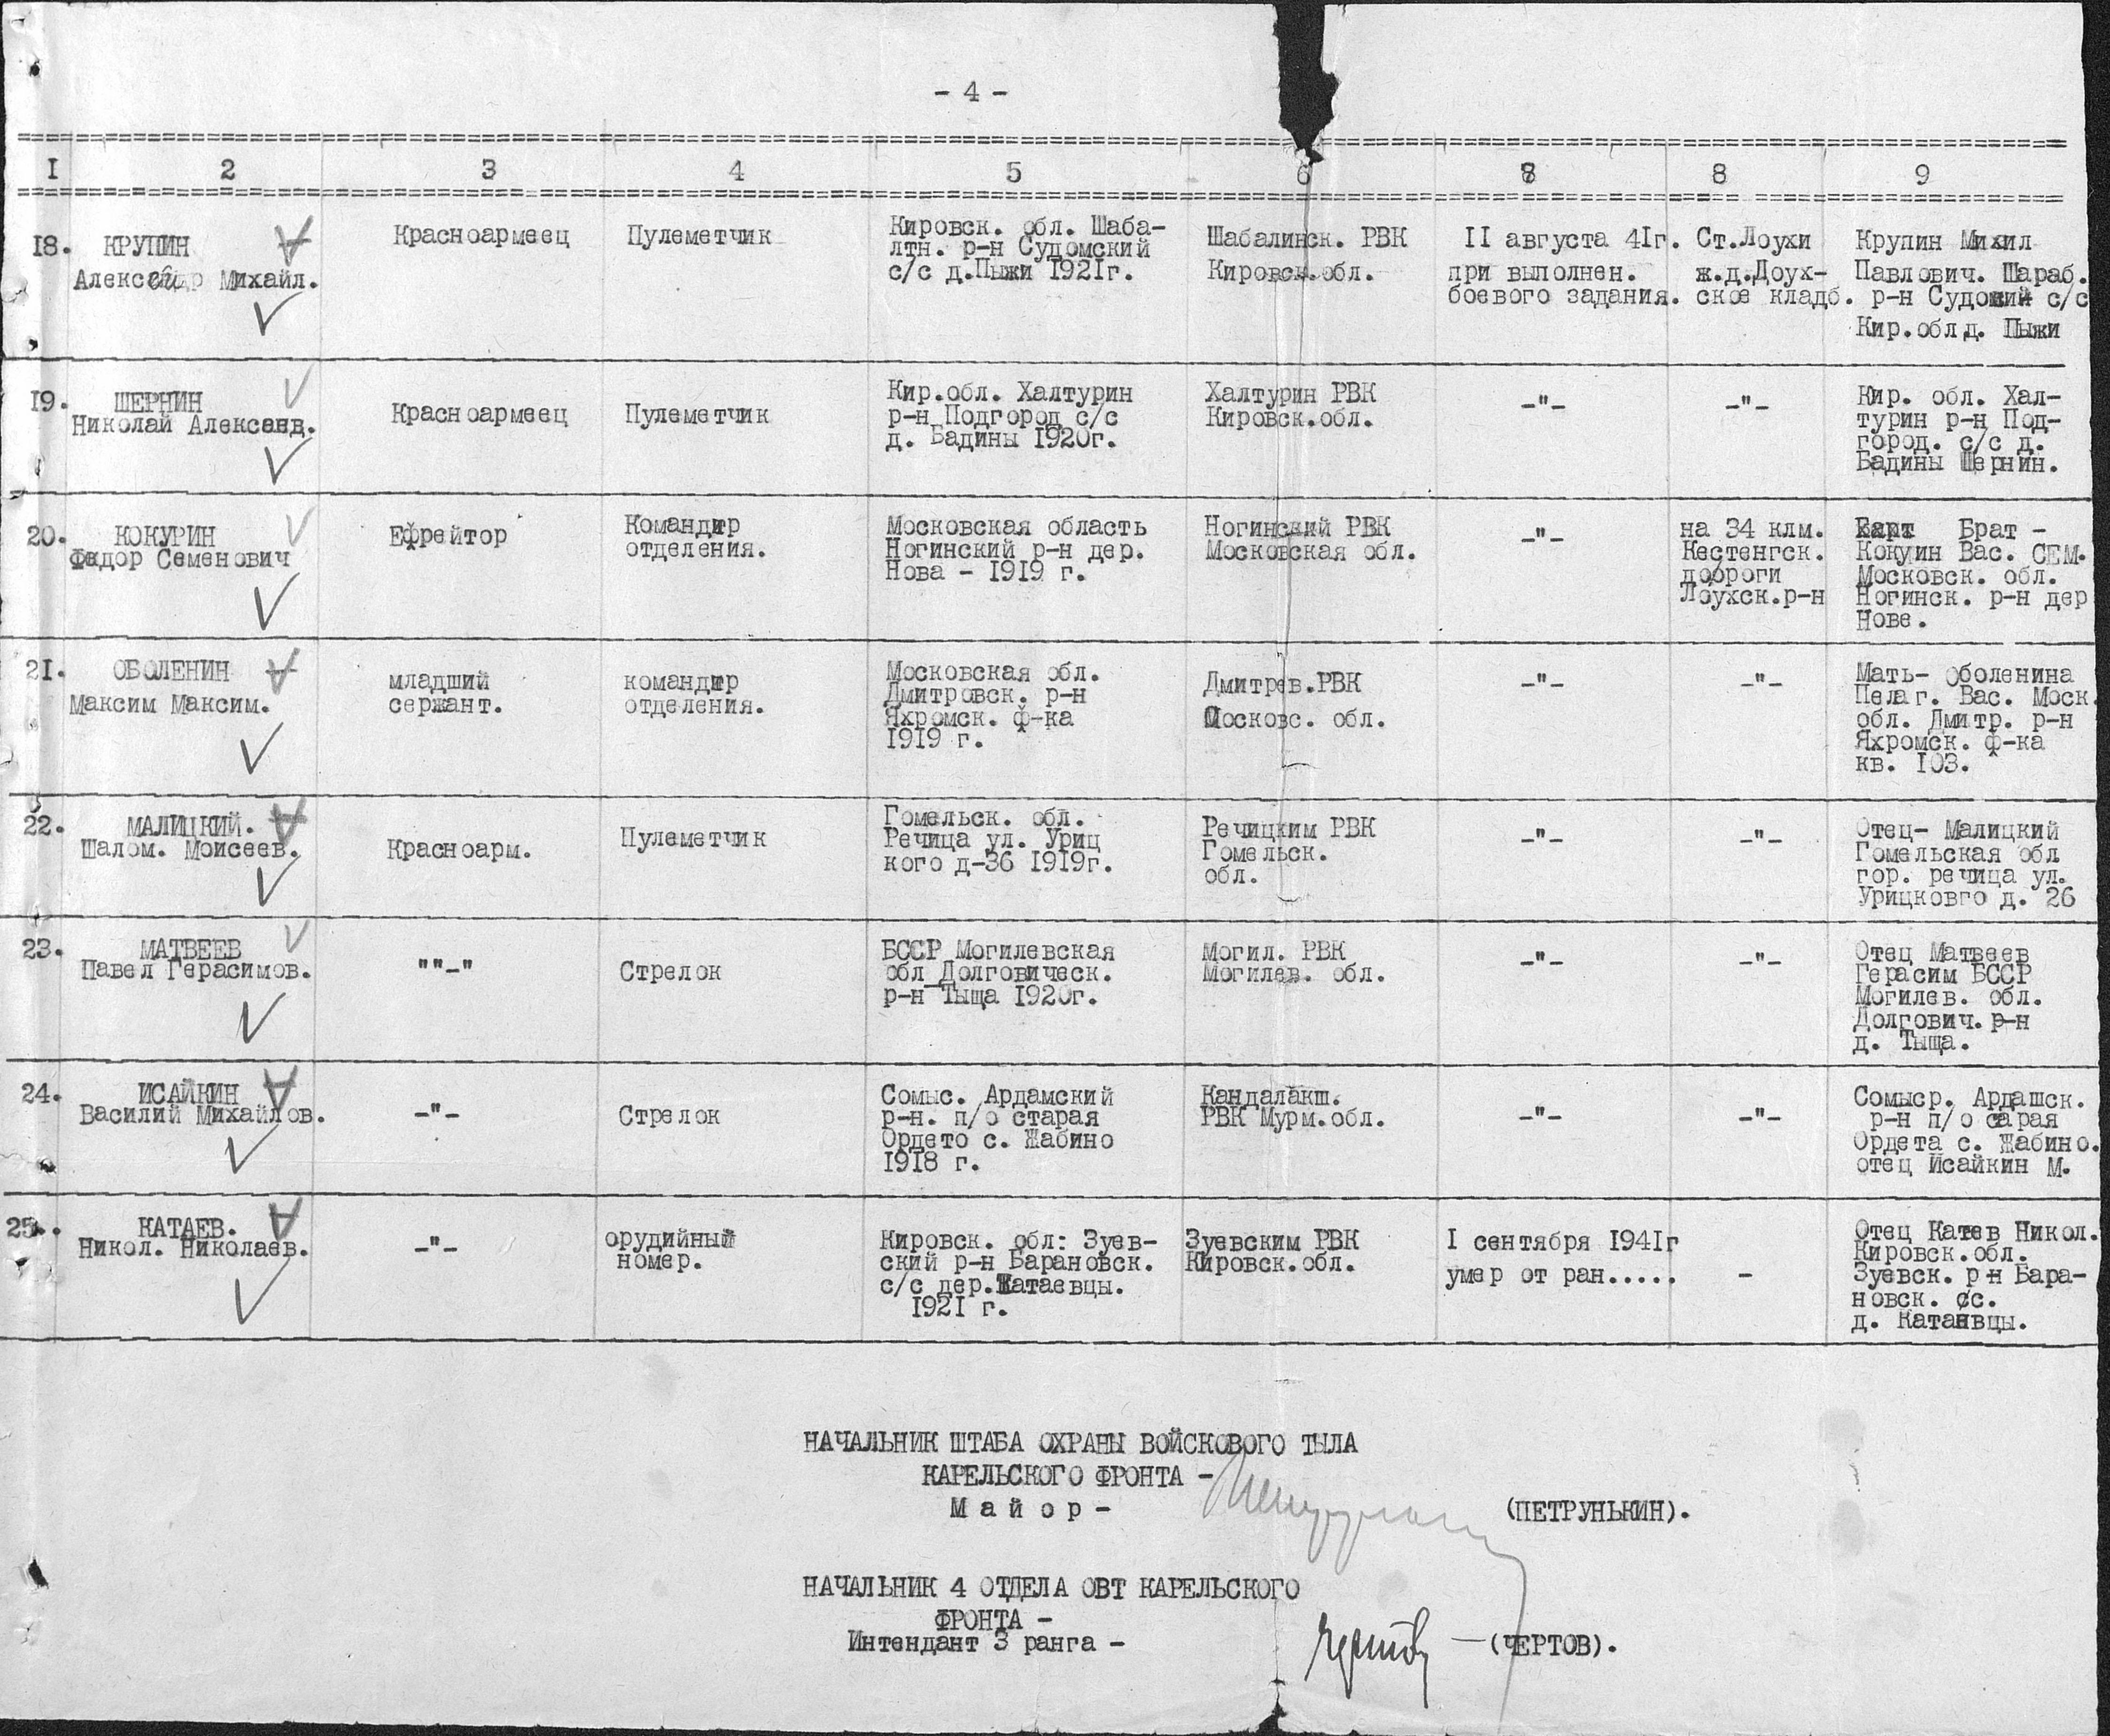 - 4 -
I 2 3 4 5 6 7 8 9
18. КРУПИН
Александр Михайл.
Красноармеец
Пулеметчик
Кировск. обл. Шаба-
лтн. р-н Судомский
с/с д.Пыжи 1921г.
Шабалинск. РВК
Кировск.обл.
II августа 41г.
при выполнен.
боевого задания.
Ст.Лоухи
ж.д.Доух-
ское кладб.
Крупин Михил
Павлович. Шараб.
р-н Судомий с/с
Кир.обл д. Пыжи
19. ШЕРНИН
Николай Александ.
Красноармеец
Пулеметчик
Кир.обл. Халтурин
р-н Подгород с/с
д. Бадины 1920г.
Халтурин РВК
Кировск.обл.
-"-
-"-
Кир. обл. Хал-
турин р-н Под-
город. с/с д.
Бадины Шернин.
20. КОКУРИН
Федор Семенович
Ефрейтор
Командир
отделения.
Московская область
Ногинский р-н дер.
Нова - 1919 г.
Ногинский РВК
Московская обл.
-"-
на 34 клм.
Кестенгск.
дороги
Лоухск.р-н
Брат -
Кокуин Вас. СЕМ.
Московск. обл.
Ногинск. р-н дер
Нове.
21. ОБОЛЕНИН
Максим Максим.
младший
сержант.
командир
отделения.
Московская обл.
Дмитровск. р-н
Яхромск. ф-ка
1919 г.
Дмитрев.РВК
Московс. обл.
-"-
-"-
Мать- Оболенина
Пелаг. Вас. Моск.
обл. Дмитр. р-н
Яхромск. ф-ка
кв. 103.
22. МАЛИЦКИЙ.
Шалом. Моисеев.
Красноарм.
Пулеметчик
Гомельск. обл.
Речица ул. Уриц
кого д-36 1919г.
Речицким РВК
Гомельск.
обл.
-"-
-"-
Отец- Малицкий
Гомельская обл
гор. речица ул.
Урицковго д. 26
23. МАТВЕЕВ
Павел Герасимов.
""-"
Стрелок
БССР Могилевская
обл Долговическ.
р-н Тыща 1920г.
Могил. РВК
Могилев. обл.
-"-
-"-
Отец Матвеев
Герасим БССР
Могилев. обл.
Долгович. р-н
д. Тыща.
24. ИСАЙКИН
Василий Михайлов.
-"-
Стрелок
Сомыс. Ардамский
р-н. п/о старая
Ордето с. Жабино
1918 г.
Кандалакш.
РВК Мурм.обл.
-"-
-"-
Сомыср. Ардашск.
р-н п/о сарая
Ордета с. Жабино.
отец Исайкин М.
25. КАТАЕВ.
Никол. Николаев.
-"-
орудийный
номер.
Кировск. обл: Зуев-
ский р-н Барановск.
с/с дер.Катаевцы.
1921 г.
Зуевским РВК
Кировск.обл.
I сентября 1941г
умер от ран.....
-
Отец Катев Никол.
Кировск.обл.
Зуевск. р-н Бара-
новск. сс.
д. Катаевцы.
НАЧАЛЬНИК ШТАБА ОХРАНЫ ВОЙСКОВОГО ТЫЛА
КАРЕЛЬСКОГО ФРОНТА -
Майор - (ПЕТРУНЬКИН).
НАЧАЛЬНИК 4 ОТДЕЛА ОВТ КАРЕЛЬСКОГО
ФРОНТА -
Интендант 3 ранга - Чертов (ЧЕРТОВ).